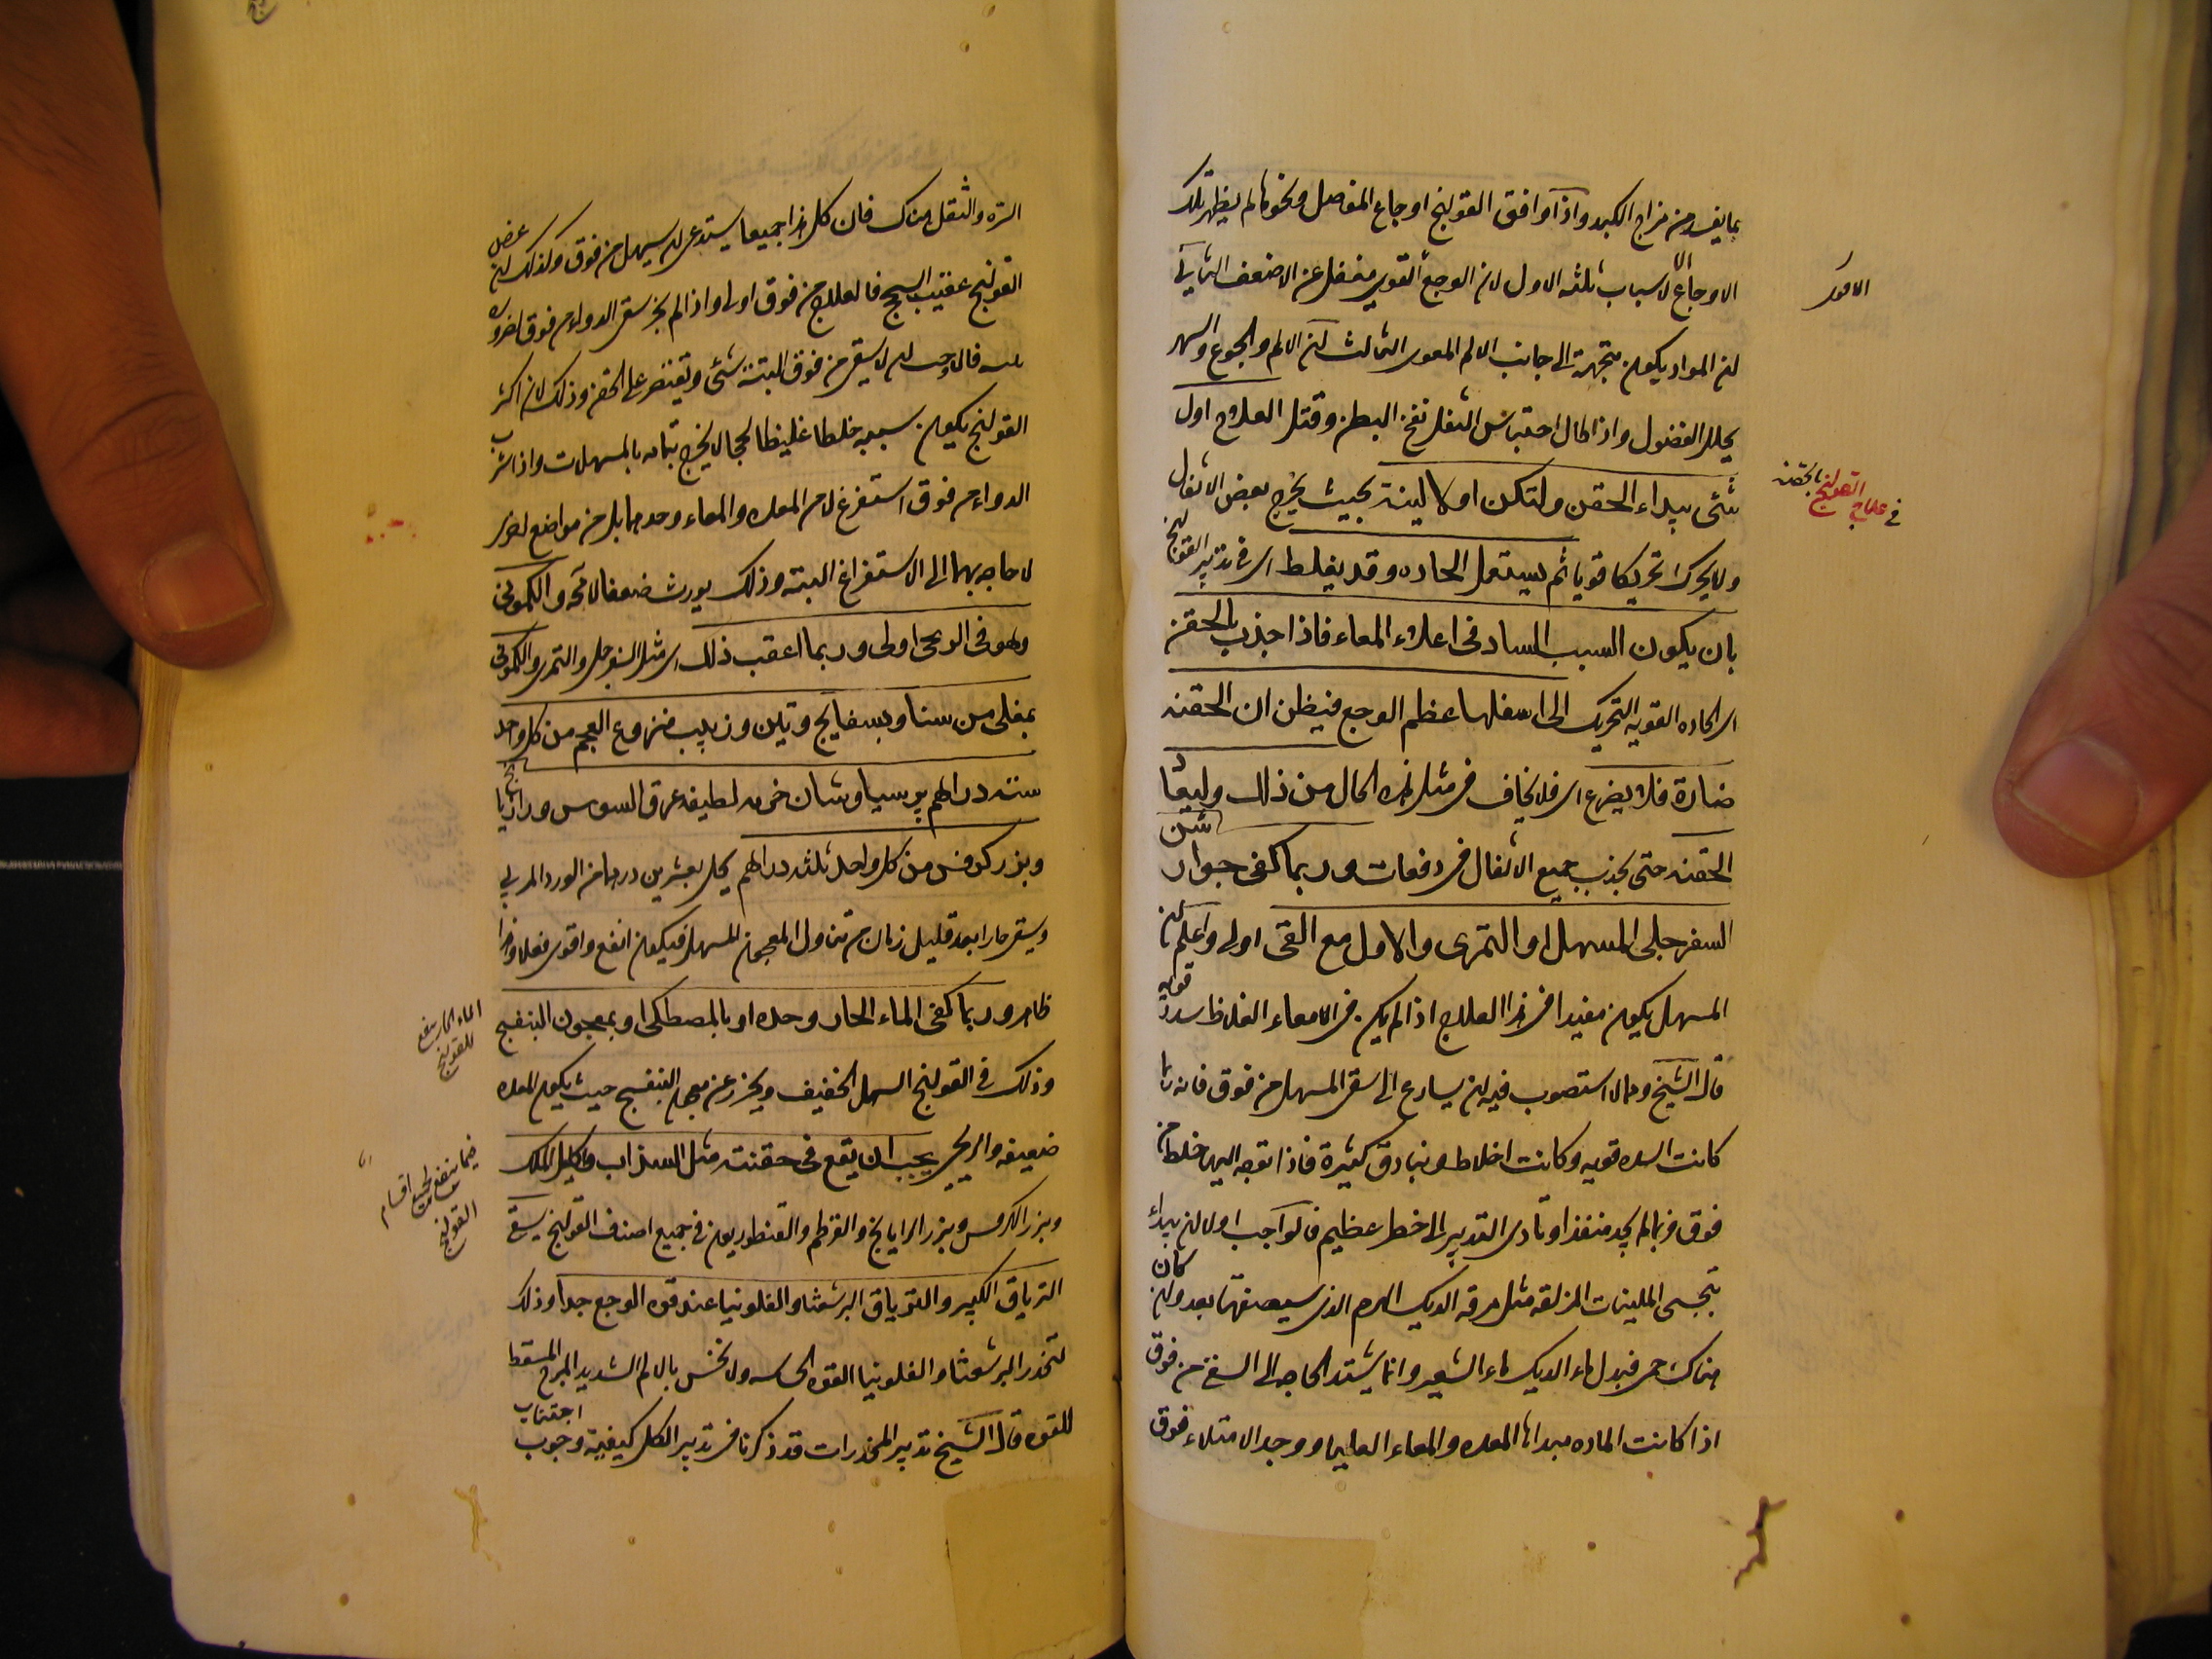 بما يفسد من مزاج الكبد واذا وافق القولنج اوجاع المفاصل ونحوها لم يظهر تلك
الاوجاع لاسباب ثلثه الاول لان الوجع القوى مغفل عن الاضعف الثانى
لان المواد يكون متجهة الى جانب الالم المعوى الثالث لان الالم والجوع والسهر
يحلل الفضول واذا طال احتباس الثفل نفخ البطن وقتل العلاج اول
شئ يبداء الحقن ولتكن اولا لينة بحيث يخرج بعض الاثفال
ولا يحرك تحريكا قويا ثم يستعمل الحاده وقد يغلط اى فى تدبير القولنج
بان يكون السبب الساد فى اعلاء المعاء فاذا جذب بالحقن
اى الحاده القويه التحريك الى اسفلها عظم الوجع فيظن ان الحقنه
ضارة فلا يضرع اى فلا يخاف فى مثل هذه الحال من ذلك وليعا
الحقنه حتى يجذب جميع الاثفال فى دفعات وربما كفى جوارشن
السفرجلى المسهل او التمرى والاول مع القى اولى واعلم ان
المسهل يكون مفيدا فى هذا العلاج اذا لم يكن فى الامعاء الغلاظ سدد قويه
قال الشيخ ومما لا استصوب فيه ان يسارع الى سقى المسهل من فوق فانه ربما
كانت السده قويه وكانت اخلاط وبنادق كثيرة فاذا توجه اليها خلط من
فوق فربما لم يجد منفذا وتادى التدبير الى خطر عظيم فالواجب اولا ان يبداء
بتحسى الملينات المزلقه مثل مرقه الديك الهرم الذى سيصفها بعد وان كان
هناك حمى فبدل ماء الديك ماء الشعير وانما يشتد الحاجه الى السقى من فوق
اذا كانت الماده مبداها المعده والمعاء العليا ووجد الامتلاء فوق
الامور
فى علاج القولنج بالحقنه
السره والثقل هناك فان كل هذا جميعا يستدعى ان يسهل من فوق وكذلك ان عرض
القولنج عقيب السحج فالعلاج من فوق اولى واذا لم يجز سقى الدواء من فوق لضروره
فالواجب ان لا يسقى من فوق البتة شئ ويقتصر على الحقن وذلك لان اكثر
القولنج يكون سببه خلطا غليظا لحجا لا يخرج بتمامه بالمسهلات واذا شرب
الدواء من فوق استفرغ لا من المعده والمعاء وحدهما بل من مواضع اخرى
لا حاجه بهما الى الاستفراغ البته وذلك يورث ضعفا لا محه والكمونى
وهو فى الريحى اولى وربما اعقب ذلك اى مثل السفرجلى والتمرى والكمونى
بمغلى من سنا وبسفايج وتين وزبيب منزوع العجم من كل واحد
ستة دراهم برسياوشان حزمه لطيفه عرق السوس ورازيانج
وبزر كرفس من كل واحد ثلثه دراهم يحلى بعشرين درهما من الورد المربى
ويسقى حارا بعد قليل زمان من تناول المعجون المسهل فيكون انفع واقوى فعلا وهذا
ظاهر وربما كفى الماء الحار وحده او بالمصطكى او بمعجون البنفسج
وذلك فى القولنج السهل الخفيف ويحزر عن معجون البنفسج حيث يكون المعده
ضعيفه والريحى يجب ان يقع فى حقنته مثل السذاب واكليل الملك
وبزر الكرفس وبزر الرازيانج والقرطم والقنطوريون فى جميع اصناف القولنج يسقى
الترياق الكبير والترياق البرشعثا والفلونيا عند قوه الوجع جدا وذلك
لتخدر البرشعثا والفلونيا القوه الحاسه ولا تحس بالالم الشديد المبرح المسقط
للقوه قال الشيخ تدبير المخدرات قد ذكرنا فى تدبير الكل كيفية وجوب اجتناب
الماء الحار ينفع للقولنج
فيما ينفع لجميع اقسام القولنج